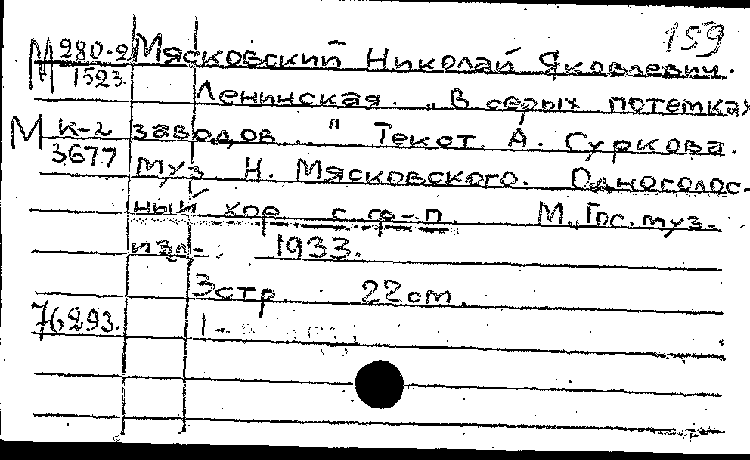 159
М 280-2 Мясковский Николай Яковлевич.
1523.
Ленинская. "В серых потемках
М К-2 заводов..." Текст А. Суркова.
3677 муз. Н. Мясковского. Одноголос-
ный хор с ф-п. М., Гос. муз.
изд- 1933.
3 стр. 22 cm.
76293. 1-